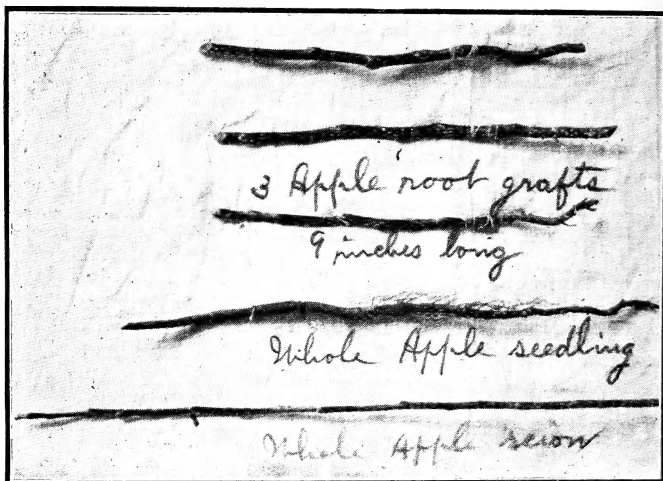 3 Apple root grafts
9 inches long
Whole Apple seedling
Whole Apple scion